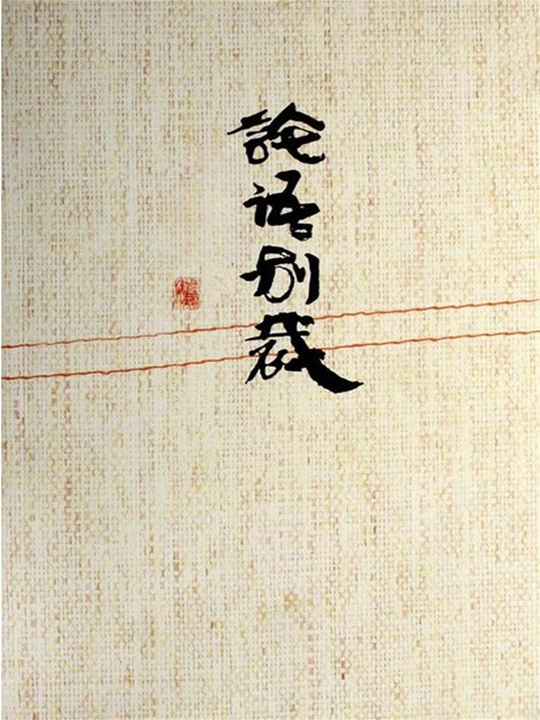 論语别裁